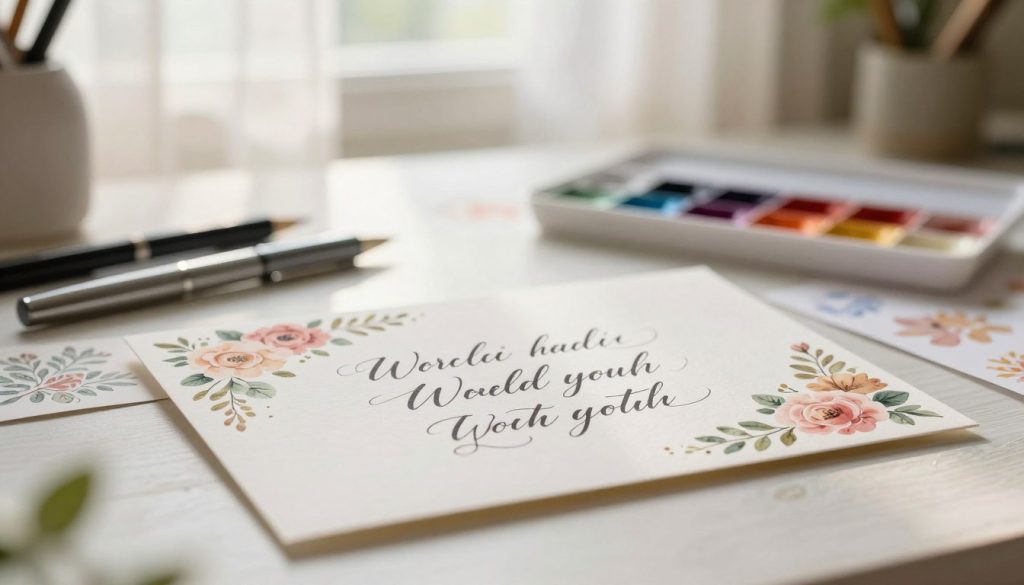 Worelei hadie
Waeld youh
Yoch yotih